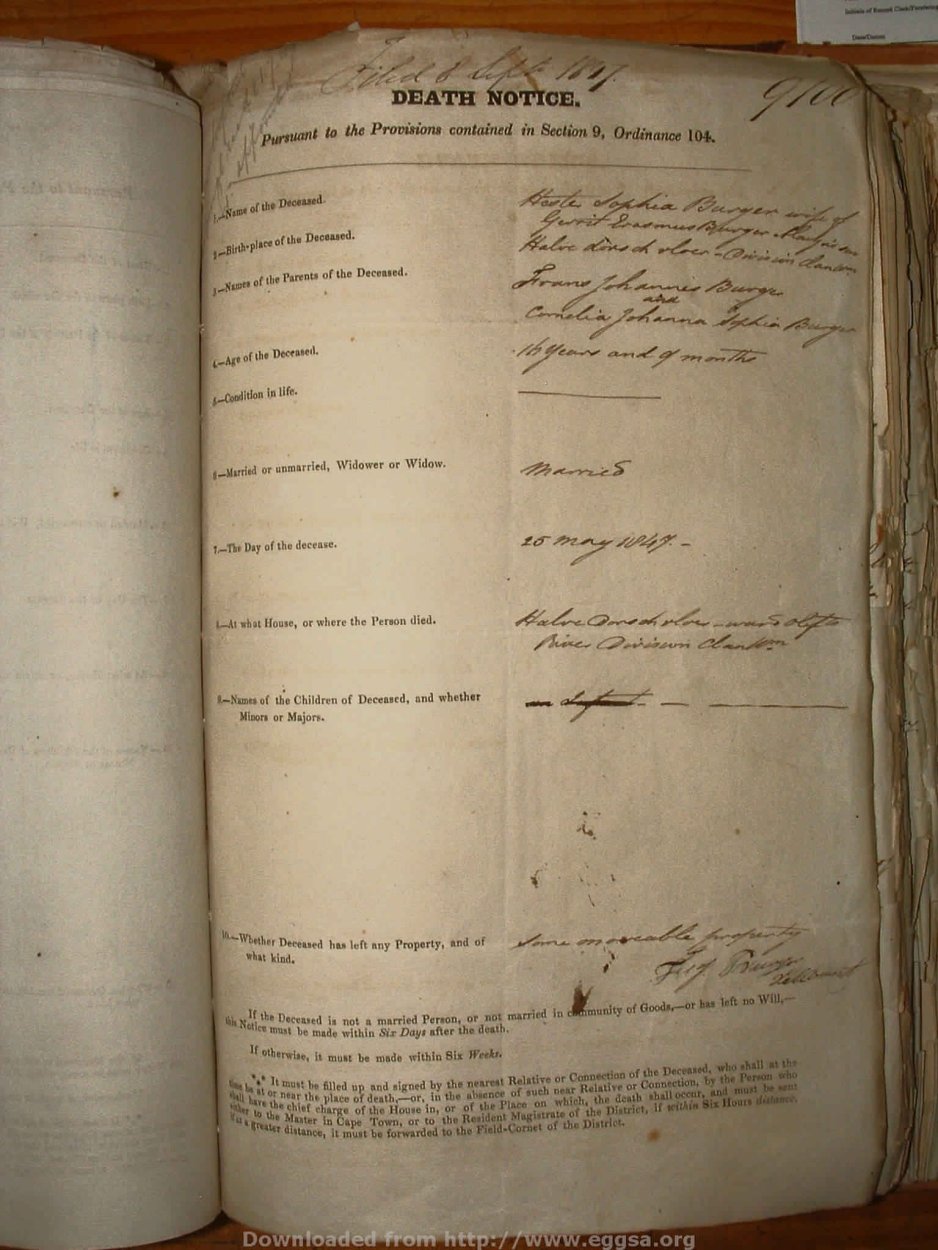 Initials of Record Clerk/Forwarding
Date/Datum
Filed 8 Sept 1847.
DEATH NOTICE.
Pursuant to the Provisions contained in Section 9, Ordinance 104.
1.—Name of the Deceased.
Hester Sophia Burger wife of
Gerrit Erasmus Burger
2.—Birth-place of the Deceased.
Halve dorsch vloer - Division Clanwm
3.—Names of the Parents of the Deceased.
Frans Johannes Burger
and
Cornelia Johanna Sophia Burger
4.—Age of the Deceased.
years and 9 months
5.—Condition in life.
6.—Married or unmarried, Widower or Widow.
Married
7.—The Day of the decease.
25 May 1847.-
8.—At what House, or where the Person died.
Halve Dorschvloer - ward Olifts
River Division Clanwm
9.—Names of the Children of Deceased, and whether
Minors or Majors.
10.—Whether Deceased has left any Property, and of
what kind.
Some moveable property
Burger
If the Deceased is not a married Person, or not married in community of Goods,—or has left no Will,—
this Notice must be made within Six Days after the death.
If otherwise, it must be made within Six Weeks.
*** It must be filled up and signed by the nearest Relative or Connection of the Deceased, who shall at the
time be at or near the place of death,—or, in the absence of such near Relative or Connection, by the Person who
shall have the chief charge of the House in, or of the Place on which, the death shall occur, and must be sent
either to the Master in Cape Town, or to the Resident Magistrate of the District, if within Six Hours distance.
If at a greater distance, it must be forwarded to the Field-Cornet of the District.
Downloaded from http://www.eggsa.org